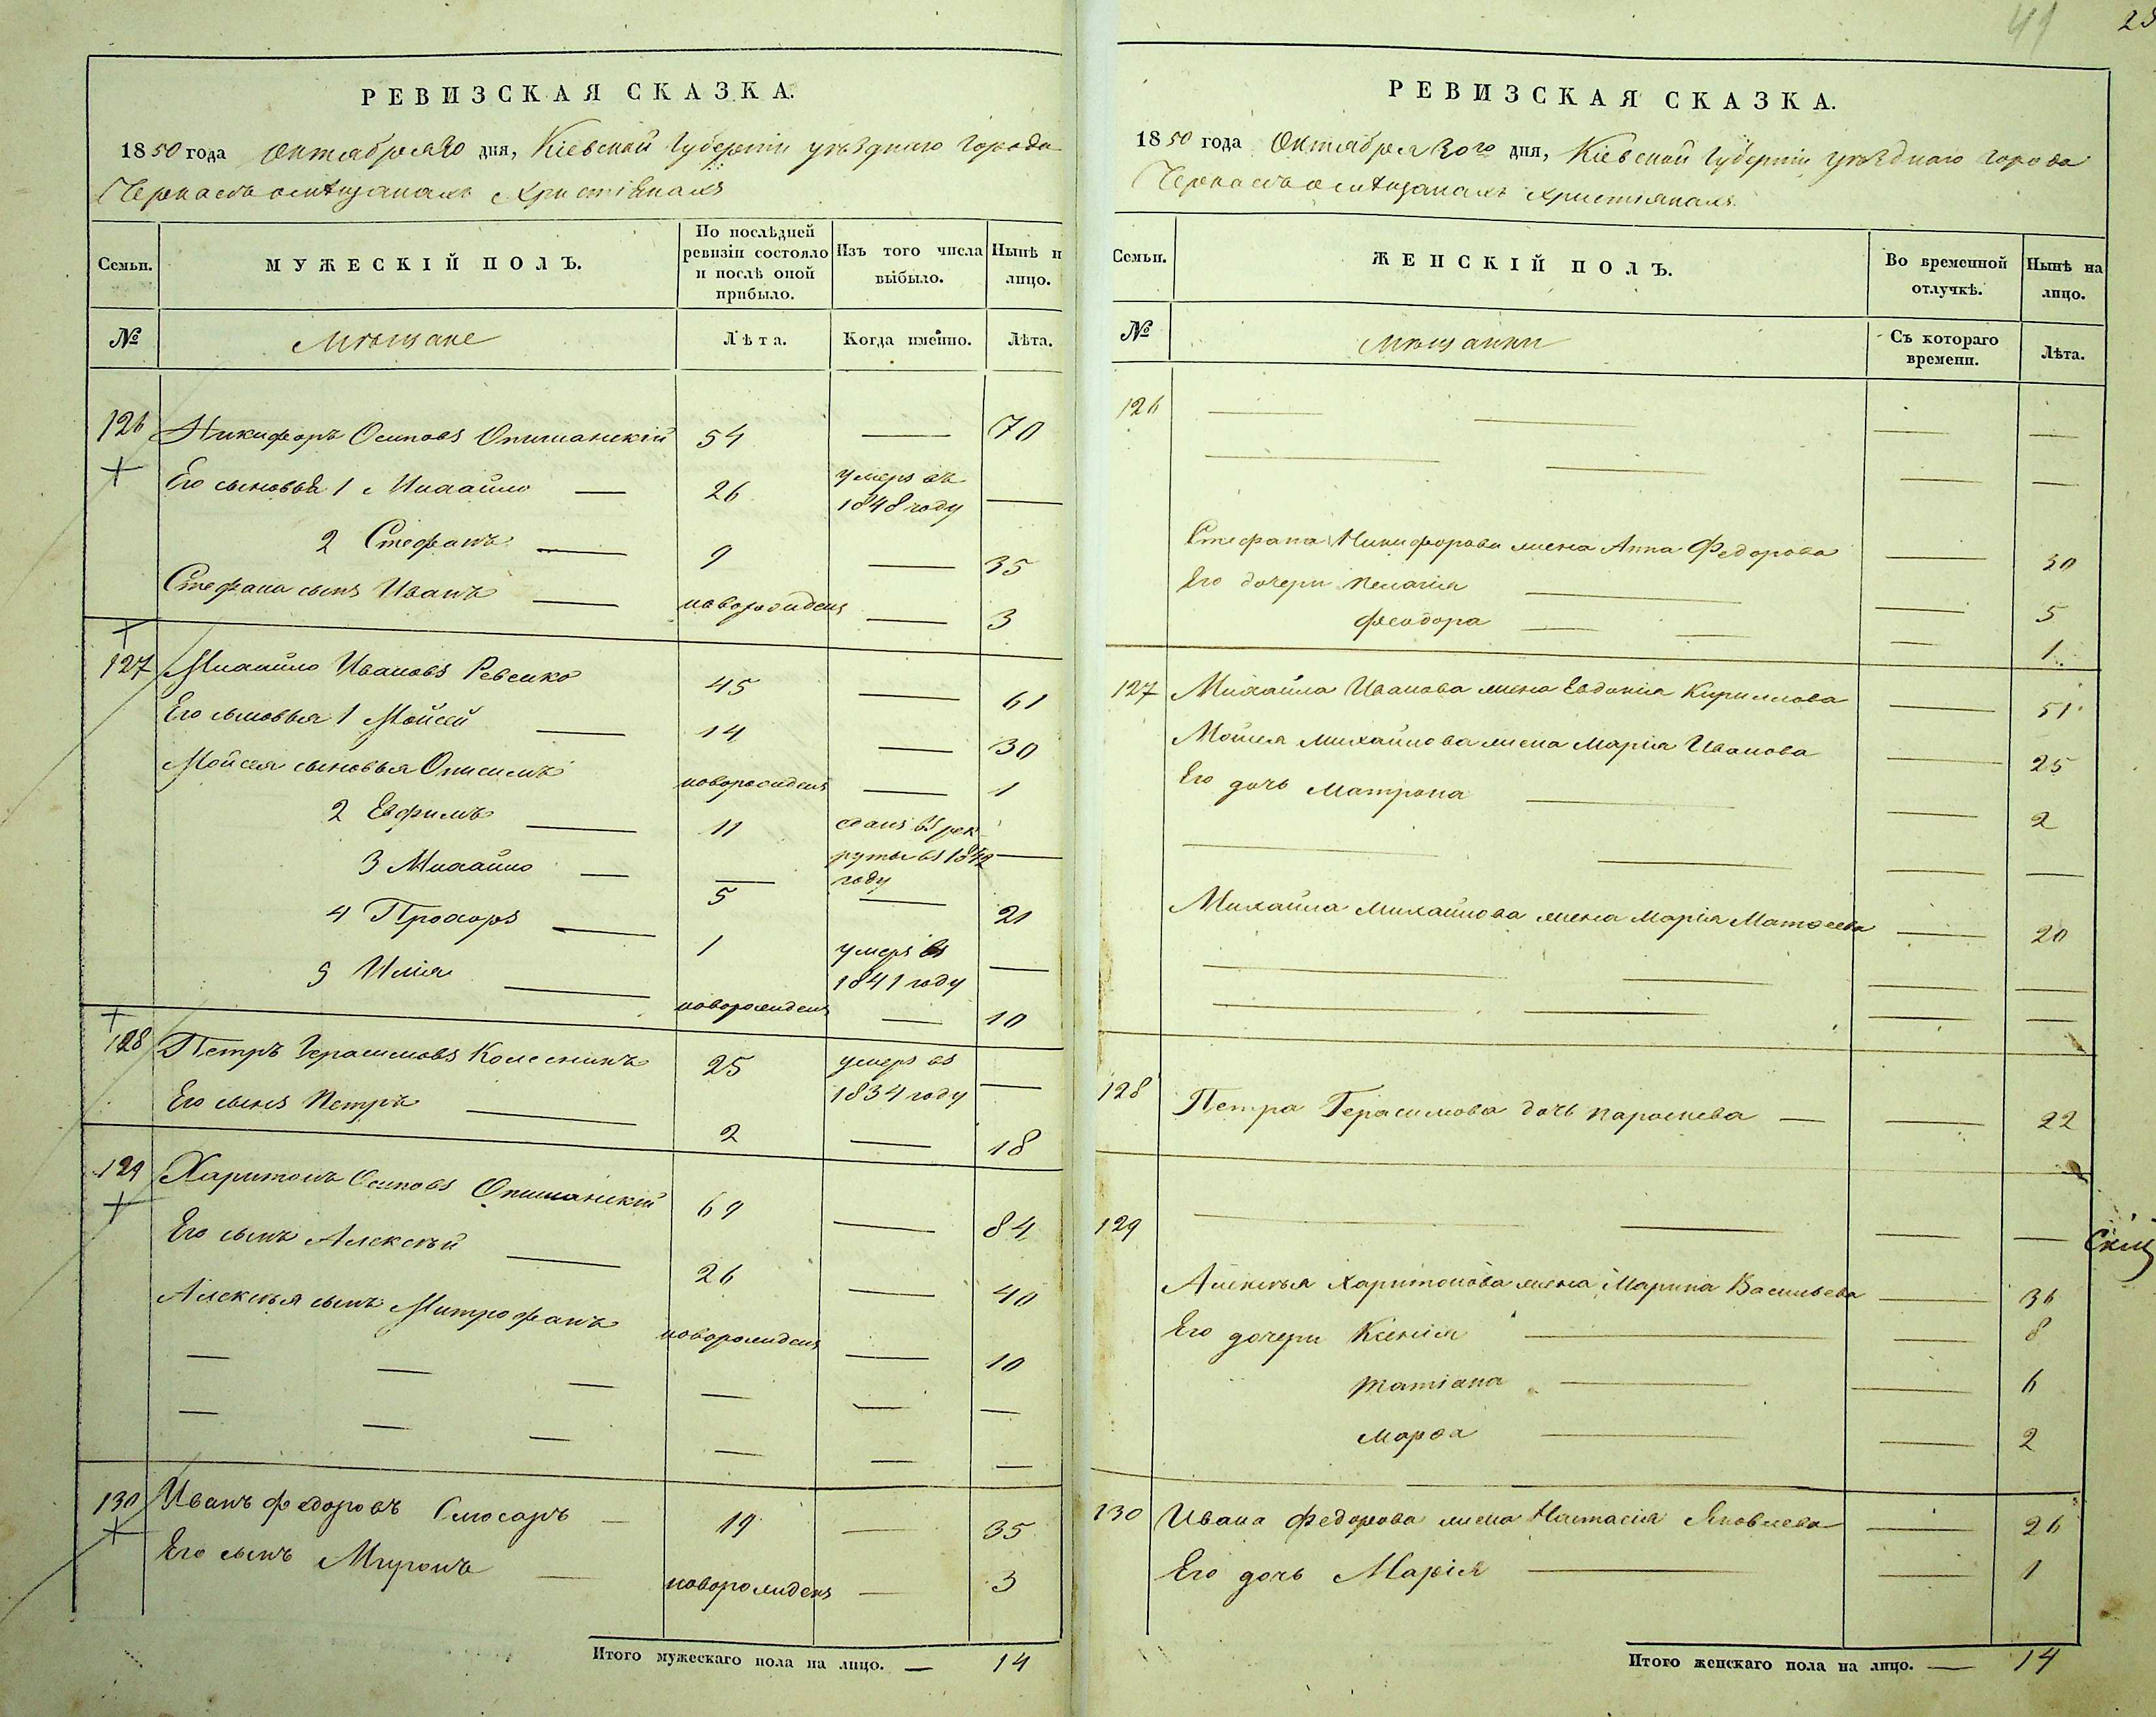 РЕВИЗСКАЯ СКАЗКА.
1850 года Октября 20 дня, Кіевской Губерніи уѣзднаго города
Черкасъ о мѣщанахъ Христіянахъ
Семьи.
МУЖЕСКІЙ ПОЛЪ.
По послѣдней ревизіи состояло и послѣ оной прибыло.
Изъ того числа выбыло.
Нынѣ н лицо.
№
Мѣщане
Лѣта.
Когда именно.
Лѣта.
126 Никифоръ Осиповъ Опишанскій 54 — 70
Его сыновья 1 Михайло — 26 умеръ въ 1848 году —
2 Стефанъ — 9 — 35
Стефана сынъ Иванъ — новорожденъ — 3
127 Михайло Ивановъ Ревенко 45 — 61
Его сыновья 1 Мойсей — 14 — 30
Мойсея сыновья Онисимъ новорожденъ — 1
2 Евфимъ — 11 сданъ въ рекруты въ 1842 году —
3 Михайло — 5 — 21
4 Прохоръ — 1 умеръ въ 1841 году —
5 Илія — новорожденъ — 10
128 Петръ Герасимовъ Колесникъ 25 умеръ въ 1834 году —
Его сынъ Петръ — 2 — 18
129 Харитонъ Осиповъ Опишанскій 69 — 84
Его сынъ Алексѣй — 26 — 40
Алексѣя сынъ Митрофанъ новорожденъ — 10
— — — — — —
— — — — — —
130 Иванъ Федоровъ Слюсаръ — 19 — 35
Его сынъ Миронъ — новорожденъ — 3
Итого мужескаго пола на лицо. — 14
41 25
РЕВИЗСКАЯ СКАЗКА.
1850 года Октября 20го дня, Кіевской Губерніи уѣзднаго города
Черкасъ о мѣщанахъ христіянахъ.
Семьи.
ЖЕНСКІЙ ПОЛЪ.
Во временной отлучкѣ.
Нынѣ на лицо.
№
Мѣщанки
Съ котораго времени.
Лѣта.
126 — — — —
— — — —
Стефана Никифорова жена Анна Федорова — 30
Его дочери Пелагія — — 5
Феодора — — — 1
127 Михайла Иванова жена Евдокія Кириллова — 51
Мойсея Михайлова жена Марія Иванова — 25
Его дочь Матрона — — 2
— — — —
Михайла Михайлова жена Марія Матвеева — 20
— — — —
— — — —
128 Петра Герасимова дочь Параскева — — 22
129 — — — —
Алексѣя Харитонова жена Марина Васильева — 36
Его дочери Ксенія — — 8
Татіана — — 6
Марѳа — — 2
130 Ивана Федорова жена Настасія Яковлева — 26
Его дочь Марія — — 1
Итого женскаго пола на лицо. — 14